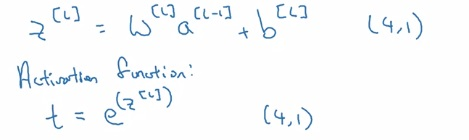 z^[L] = W^[L] a^[L-1] + b^[L] (4,1)
Activation function:
t = e^(z^[L]) (4,1)